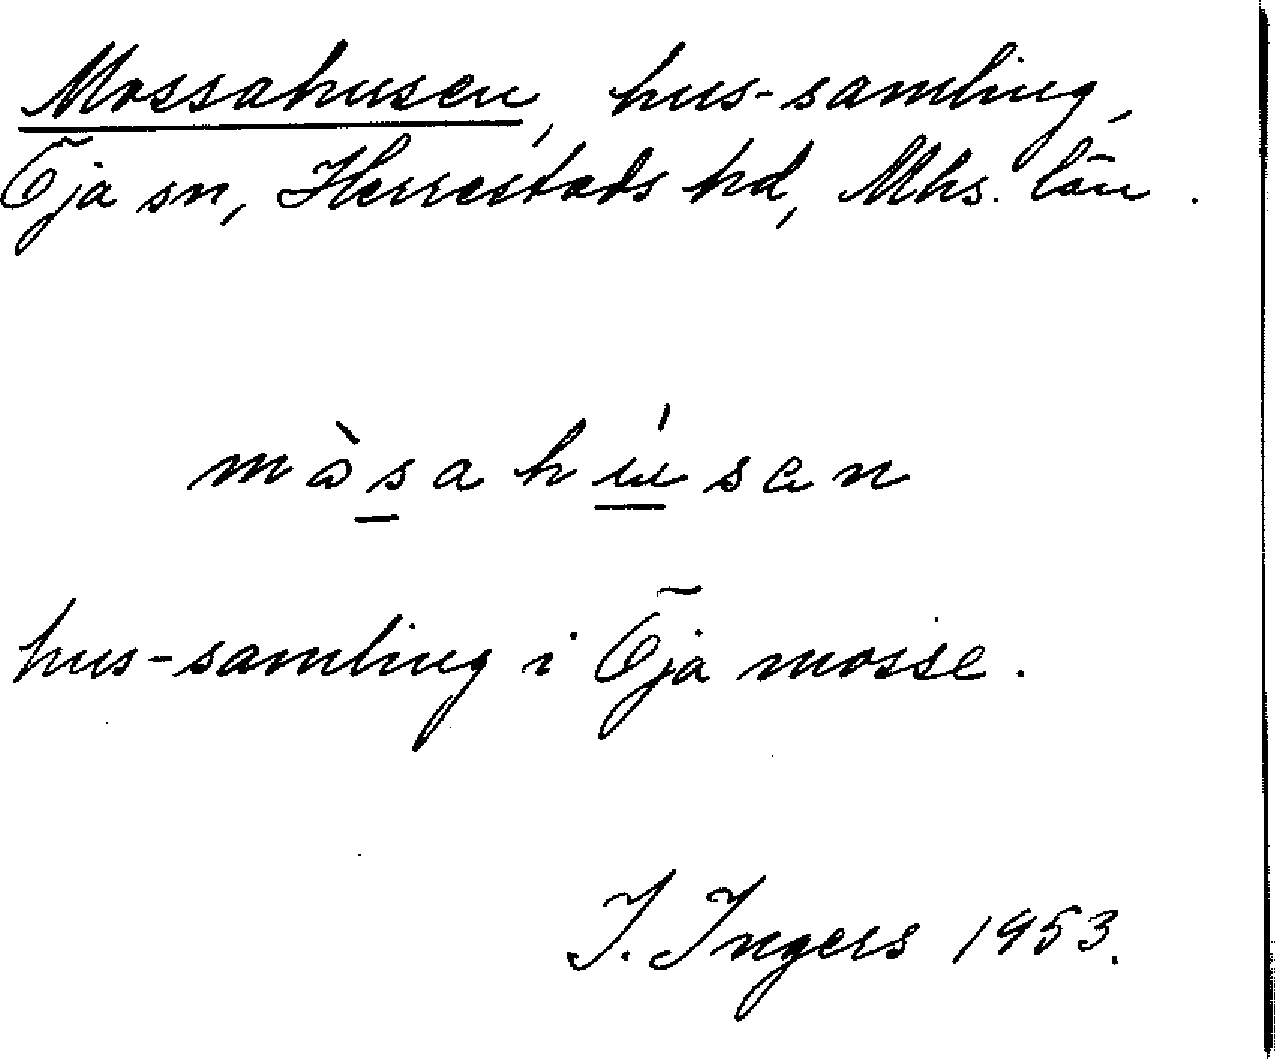 Mossahusen, hus-samling,
Öja sn, Herrestads hd, Mhs. län.
mòsahúsen
hus-samling i Öja mosse.
I. Ingers 1953.